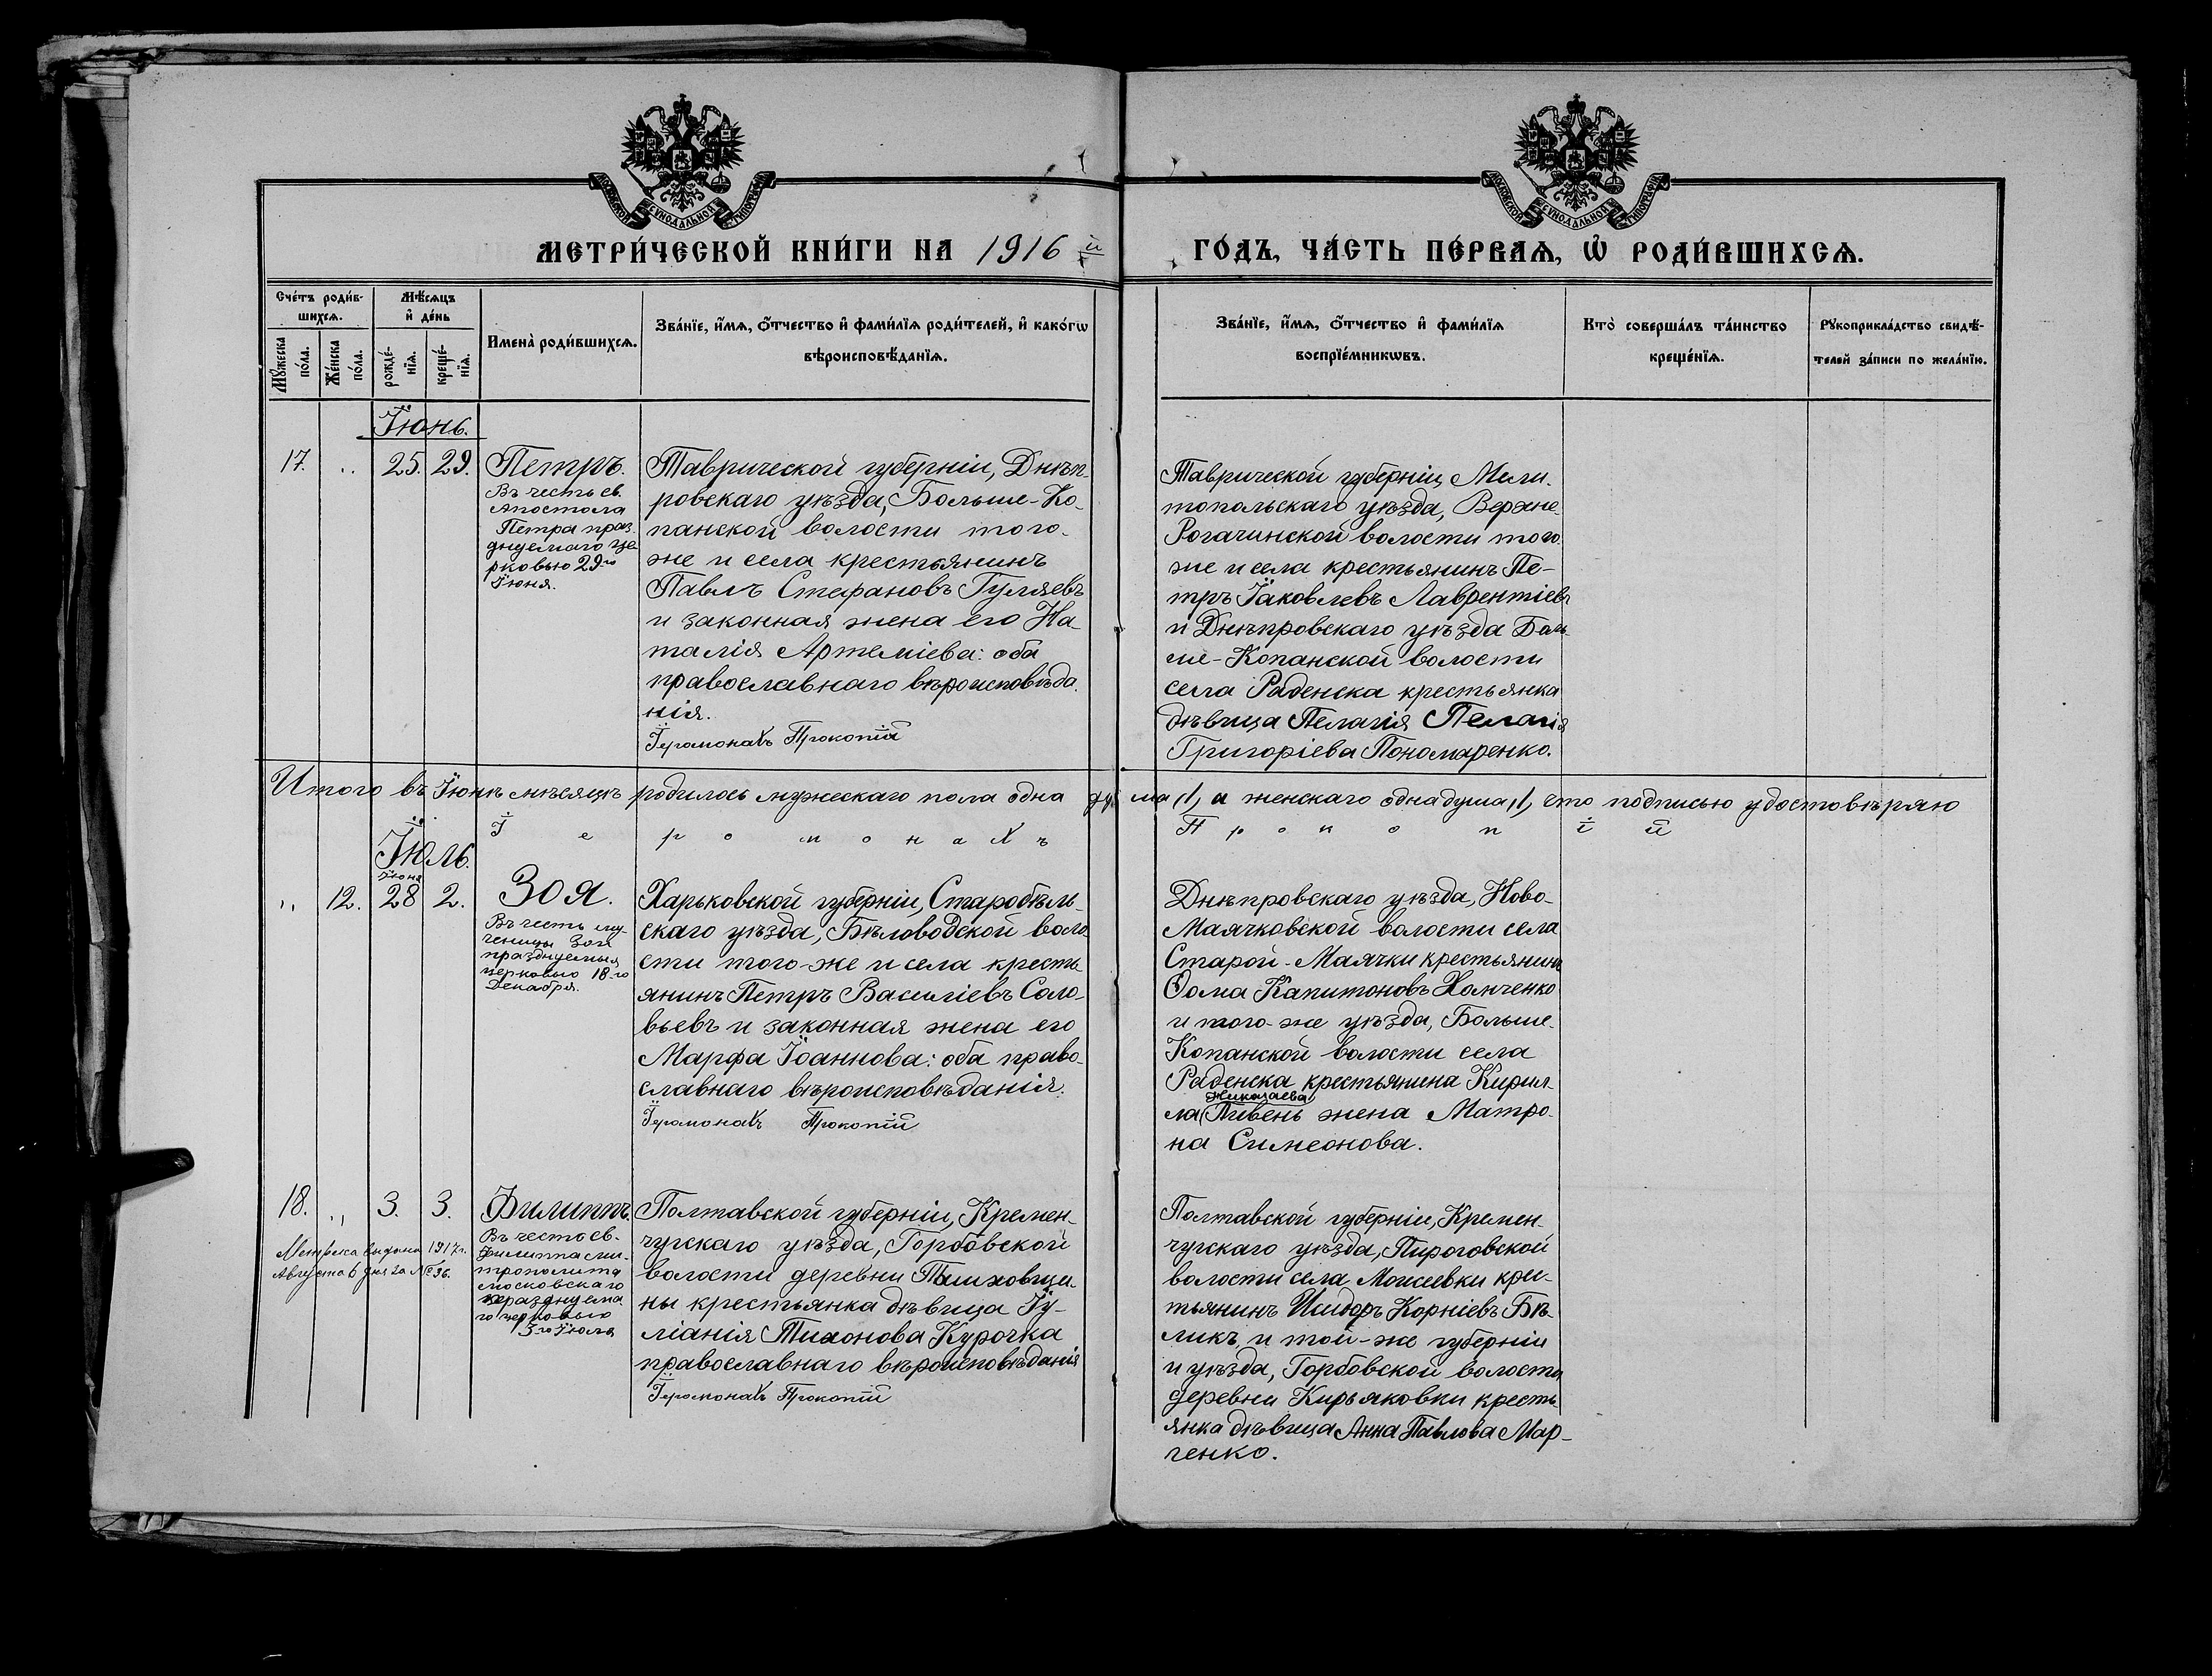 МОСКОВСКОЙ СѴНОДАЛЬНОЙ ТИПОГРАФІИ
МОСКОВСКОЙ СѴНОДАЛЬНОЙ ТИПОГРАФІИ
МЕТРИ́ЧЕСКОЙ КНИ́ГИ НА 1916 й
ГО́ДЪ, ЧА́СТЬ ПЕ́РВАѦ, Ѡ҆ РОДИ́ВШИХСѦ.
Сче́тъ роди́в-
шихсѧ.
Мꙋ́жеска по́ла.
Же́нска по́ла.
Мѣ́сѧцъ
и҆ де́нь
рожде́-
нїѧ.
креще́-
нїѧ.
Имена̀ роди́вшихсѧ.
Зва́нїе, и҆́мѧ, ѻ҆́тчество и҆ фами́лїѧ роди́телей, и҆ како́гѡ
вѣроисповѣ́данїѧ.
Зва́нїе, и҆́мѧ, ѻ҆́тчество и҆ фами́лїѧ
воспрїе́мникѡвъ.
Кто̀ соверша́лъ та́инство
креще́нїѧ.
Рꙋкоприкла́дство свидѣ́-
телей за́писи по жела́нїю.
Іюнь.
17. „ 25. 29. Петръ.
Въ честь св.
Апостола
Петра праз-
днуемаго це-
рковью 29го
Іюня.
Таврической губерніи, Днѣп-
ровскаго уѣзда, Больше-Ко-
панской волости того-
же и села крестьянинъ
Павлъ Стефановъ Гуляевъ
и законная жена его На-
талія Артеміева: оба
православнаго вѣроисповѣда-
нія.
Іеромонахъ Прокопій
Таврической губерніи, Мели-
топольскаго уѣзда, Верхне-
Рогачинской волости того-
же и села крестьянинъ Пе-
тръ Іаковлевъ Лаврентіевъ
и Днѣпровскаго уѣзда Боль-
ше-Копанской волости
села Раденска крестьянка
дѣвица Пелагія Пелагія
Григоріева Пономаренко.
Итого въ Іюнѣ мѣсяцѣ родилось мужескаго пола одна душа /1/, а женскаго одна душа /1/, что подписью удостовѣряю
Іеромонахъ Прокопій
Іюль.
Іюня
„ 12. 28 2. Зоя.
Въ честь му-
ченицы Зои
празднуемыя
церковью 18-го
Декабря.
Харьковской губерніи, Старобѣль-
скаго уѣзда, Бѣловодской воло-
сти того-же и села кресть-
янинъ Петръ Василіевъ Соло-
вьевъ и законная жена его
Марфа Іоаннова: оба право-
славнаго вѣроисповѣданія.
Іеромонахъ Прокопій
Днѣпровскаго уѣзда, Ново-
Маячковской волости села
Старой-Маячки крестьянинъ
Ѳома Капитоновъ Хомченко
и того-же уѣзда, Больше-
Копанской волости села
Раденска крестьянина Кирил-
Николаева
ла Пивень жена Матро-
на Симеонова.
18. „ 3. 3. Филиппъ.
Въ честь св.
Филиппа ми-
трополита
Московскаго
празднуема-
го церковью
3го Іюля
Метрика выдана 1917 г.
Августа 6 дня за № 36.
Полтавской губерніи, Кремен-
чугскаго уѣзда, Горбовской
волости деревни Тимховщи-
ны крестьянка дѣвица Іу-
ліанія Тихонова Курочка
православнаго вѣроисповѣданія
Іеромонахъ Прокопій
Полтавской губерніи, Кремен-
чугскаго уѣзда, Пироговской
волости села Моисеевки крес-
тьянинъ Исидоръ Корніевъ Бѣ-
ликъ и той-же губерніи
и уѣзда, Горбовской волости
деревни Кирьяковки кресть-
янка дѣвица Анна Павлова Мар-
ченко.